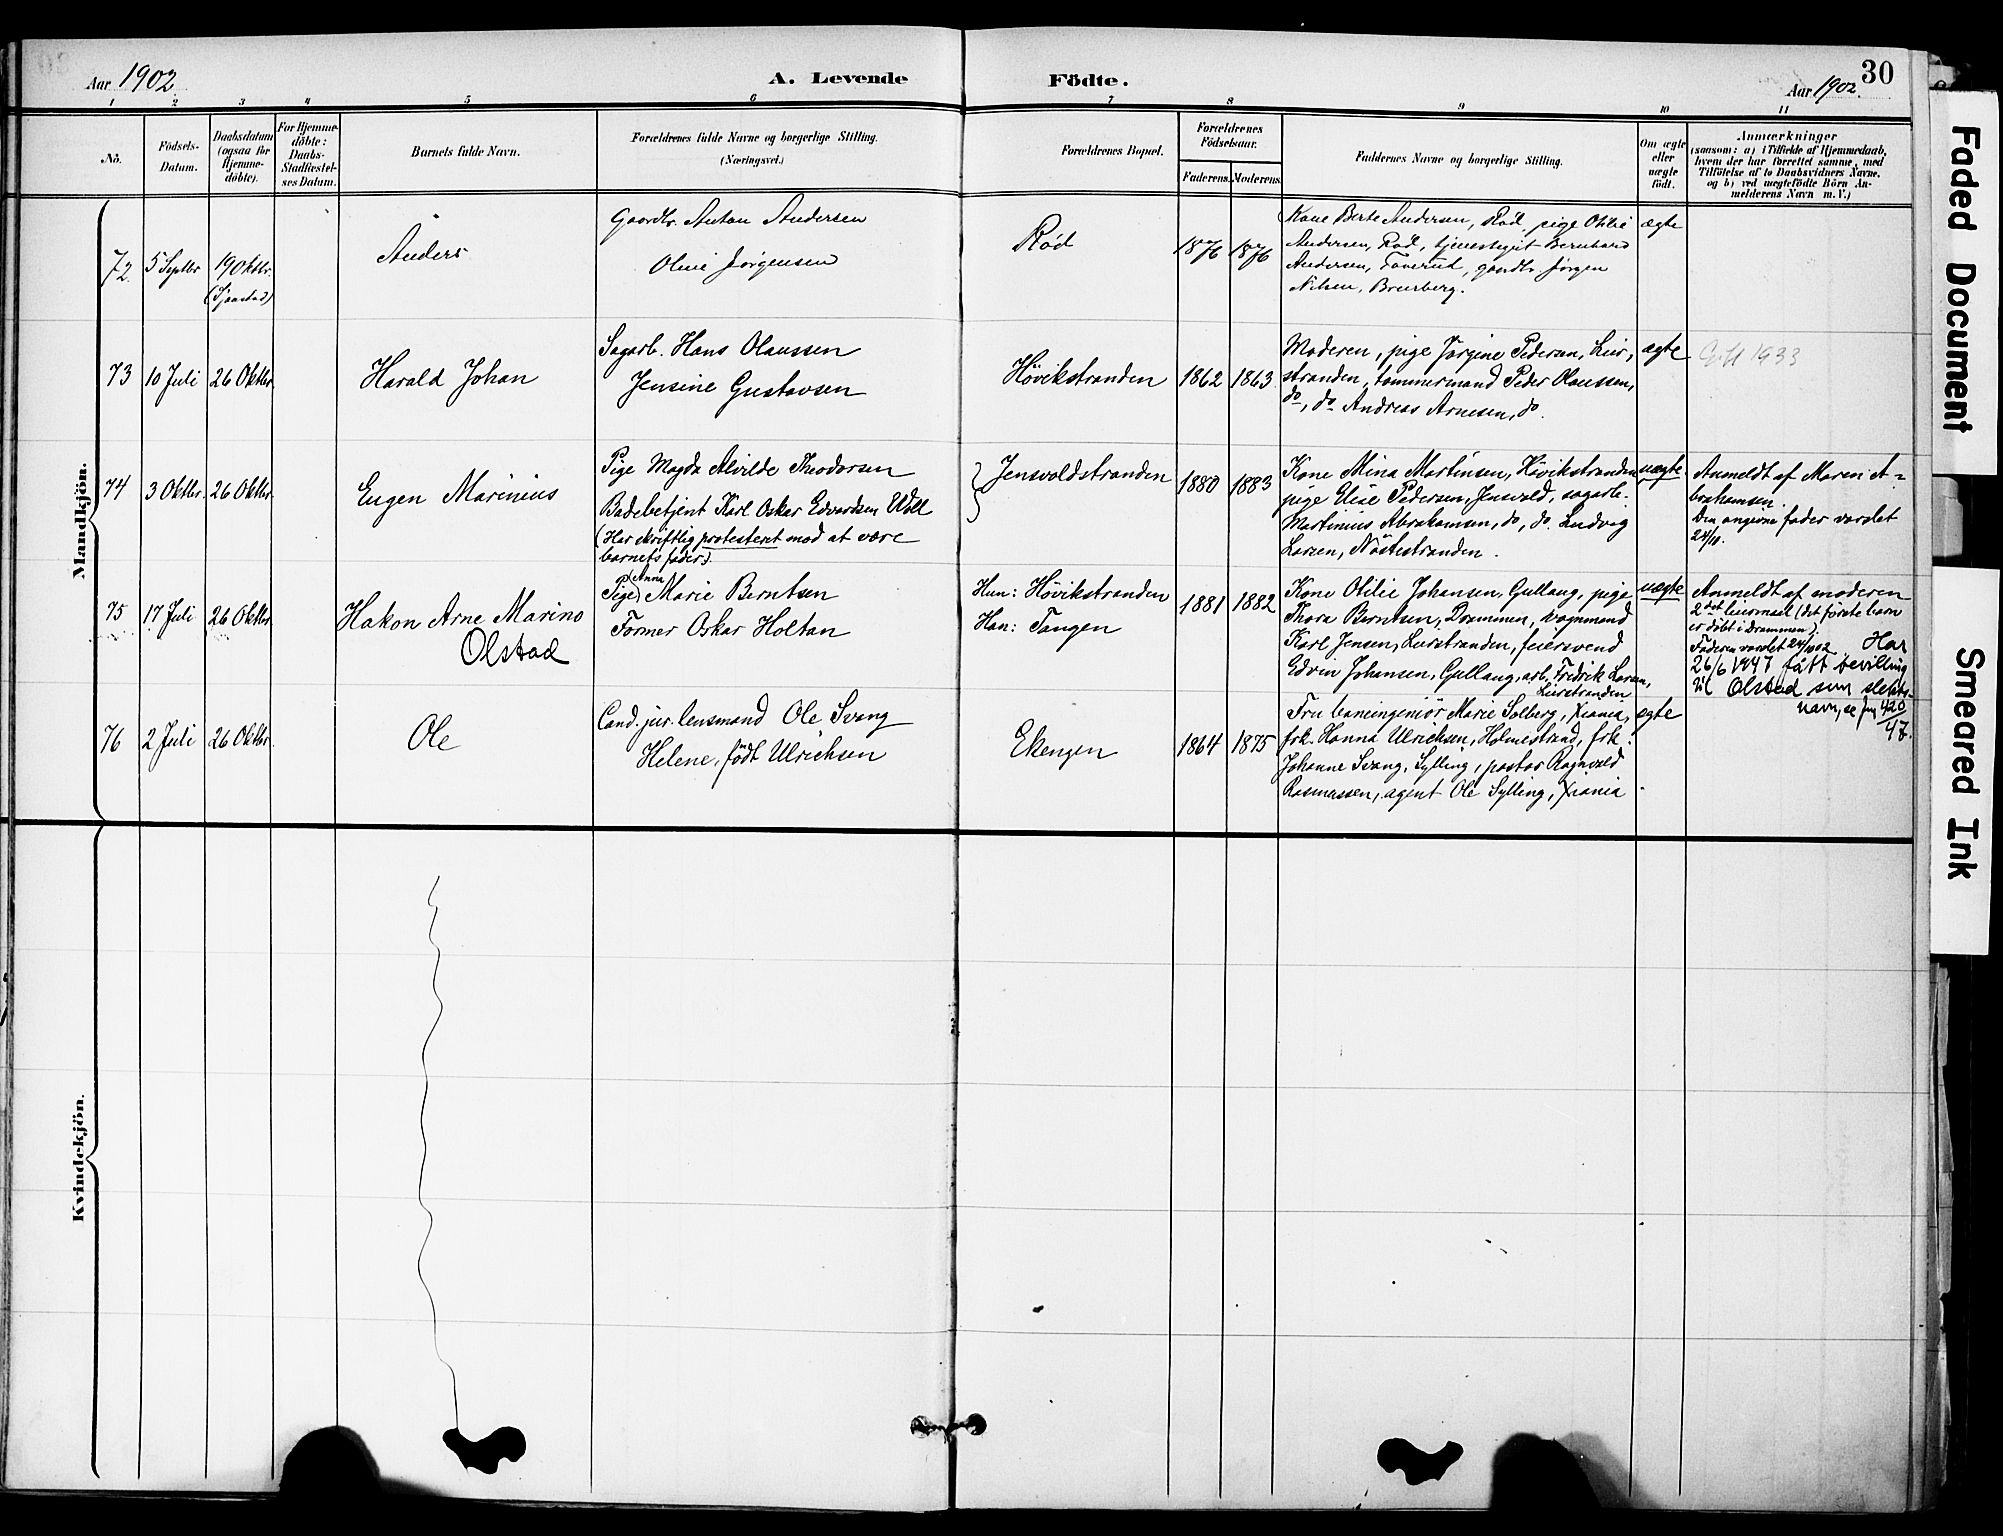 Aar 1902
A. Levende Födte.
Aar 1902.
30
1 2 3 4 5 6 7 8 9 10 11
No.
Födsels-
Datum.
Daabsdatum
(ogsaa för
Hjemme-
döbte).
For Hjemme-
döbte:
Daabs-
Stadfæstel-
ses Datum.
Barnets fulde Navn.
Forældrenes fulde Navne og borgerlige Stilling.
(Næringsvei.)
Forældrenes Bopæl.
Forældrenes
Födselsaar.
Faderens.
Moderens.
Faddernes Navne og borgerlige Stilling.
Om ægte
eller
uægte
födt.
Anmærkninger
(saasom: a) i Tilfælde af Hjemmedaab,
hvem der har forrettet samme, med
Tilföielse af to Daabsvidners Navne.
og b) ved uægtefödte Börn An-
melderens Navn m.V.)
Mandkjön.
72
5 Septbr
19 Oktbr.
(Sjaastad)
Anders
Gaardbr. Anton Andersen
Oline Jørgensen
Rød
1876
1876
Kone Berte Andersen, Rød, pige Otilie
Andersen, Rød, tjenestegut Bernhard
Andersen, Toverud, gaardbr. Jørgen
Nilsen, Bruusberg.
ægte
73
10 Juli
26 Oktbr.
Harald Johan
Sagarb. Hans Olaussen
Jensine Gustavsen
Høvikstranden
1862
1863
Moderen, pige Jørgine Pedersen, Lier-
stranden, tømmermand Peder Olaussen,
do, do Andreas Arnesen, do.
ægte
1933
74
3 Oktbr.
26 Oktbr.
Eugen Marinius
Pige Magda Alvilde Theodorsen
Badebetjent Karl Oskar Edvardsen Woll
(Har skriftlig protesteret mod at være
barnets fader)
Jensvoldstranden
1880
1883
Kone Mina Martinsen, Høvikstranden
pige Elise Pedersen, Jensvold, sagarb.
Martinius Abrahamsen, do, do. Ludvig
Larsen, Nøstestranden.
uægte
Anmeldt af Maren A-
brahamsen.
Den angivne fader varslet
24/10.
75
17 Juli
26 Oktbr
Hakon Arne Marino
Olstad
Pige Anna Marie Berntsen
Former Oskar Holtan
Hun: Høvikstranden
Han: Tangen
1881
1882
Kone Otilie Johansen, Gullaug, pige
Thora Berntsen, Drammen, vognmand
Karl Jensen, Lierstranden, feiersvend
Edvin Johansen, Gullaug, arb. Fredrik Larsen,
Lierstranden
uægte
Anmeldt af moderen
2det leiermaal (det første barn
er døbt i Drammen).
Faderen varslet 24/10 02. Har
26/6 1947 fått bevilling
til Olstad som slekts-
navn, se jnr 420
47.
76
2 Juli
26 Oktbr.
Ole
Cand. jur. lensmand Ole Svang
Helene, født Ulrichsen
Ekengen
1864
1875
Fru baneingeniør Marie Solberg, Xrania,
frk. Hanna Ulrichsen, Holmestrand, frk.
Johanne Svang, Sylling, pastor Ragnvald
Rasmussen, agent Ole Sylling, Xrania.
ægte
Kvindekjön.
Faded Document
Smeared Ink